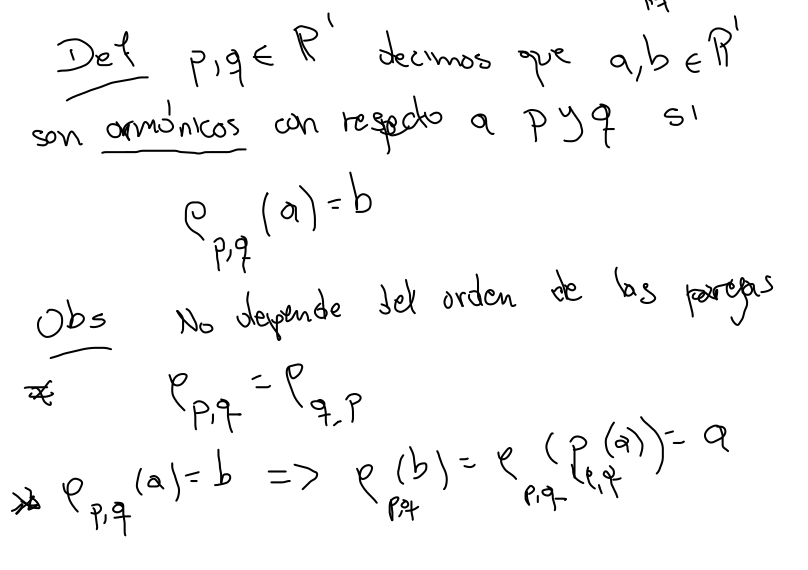 Def p,q ∈ P¹ decimos que a,b ∈ P¹
son armónicos con respecto a p y q si
ρ_{p,q}(a) = b
Obs No depende del orden de las parejas
* ρ_{p,q} = ρ_{q,p}
* ρ_{p,q}(a) = b => ρ_{p,q}(b) = ρ_{p,q}(ρ_{p,q}(a)) = a